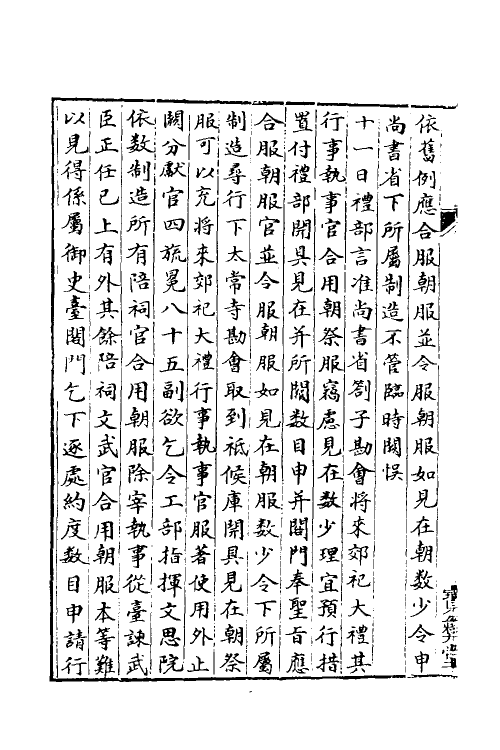 依舊例應合服朝服並令服朝服如見在朝數少令申
尚書省下所屬制造不管臨時闕悞
十一日禮部言准尚書省劄子勘會將來郊祀大禮其
行事執事官合用朝祭服竊慮見在數少理宜預行措
置付禮部開具見在并所闕數目申并閤門奉聖旨應
合服朝服官並令服朝服如見在朝服數少令下所屬
制造尋行下太常寺勘會取到祗候庫開具見在朝祭
服可以充將來郊祀大禮行事執事官服著使用外止
闕分獻官四旒冕八十五副欲乞令工部指揮文思院
依數制造所有陪祠官合用朝服除宰執事從臺諫武
臣正任已上有外其餘陪祠文武官合用朝服本等難
以見得係屬御史臺閤門乞下逐處約度數目申請行